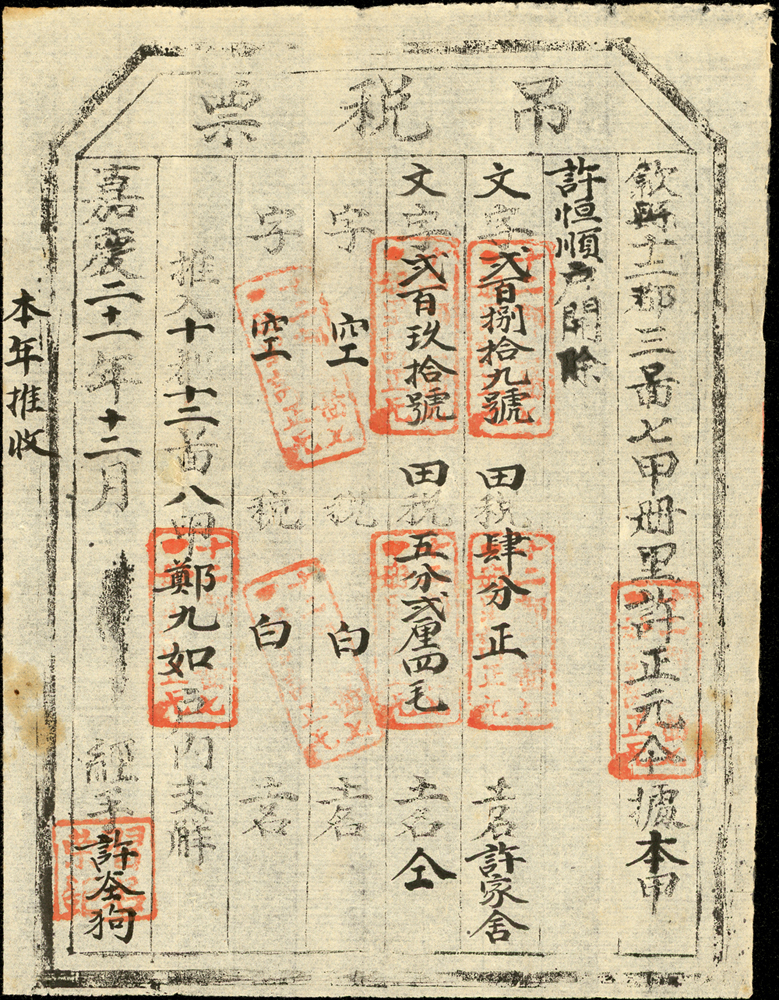 吊税票
歙縣十二都三啚七甲册里許正元今據本甲
許恒順戶開除
文字弍百捌拾九號田税肆分正土名許家舍
文字弍百玖拾號田税五分弍厘四毛土名仝
字空税白土名
字空税白土名
推入十都十二啚八甲鄭九如戶內支解
嘉慶二十一年十二月 經手許
本年推收